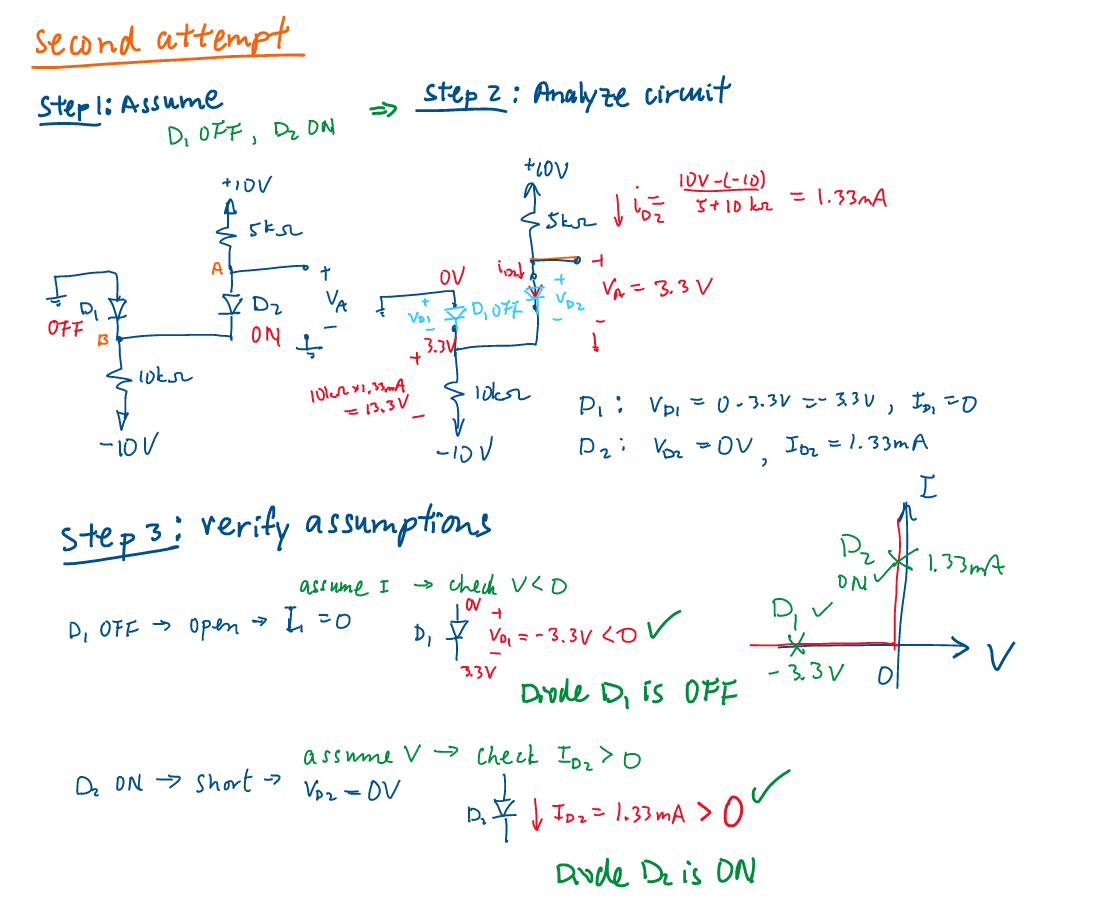 Second attempt
Step 1: Assume
D₁ OFF, D₂ ON
⇒ Step 2: Analyze circuit
+10V
5kΩ
A
D₁
OFF
D₂
ON
+
V_A
−
B
10kΩ
-10V
+10V
5kΩ
↓ i_D2 = (10V-(-10))/(5+10 kΩ) = 1.33mA
0V
+
V_A = 3.3V
−
+
V_D1
−
D₁ OFF
+
V_D2
−
+
3.3V
10kΩ × 1.33mA
= 13.3V
−
10kΩ
-10V
D₁: V_D1 = 0-3.3V = -3.3V, I_D1 = 0
D₂: V_D2 = 0V, I_D2 = 1.33mA
Step 3: verify assumptions
assume I → check V<0
D₁ OFF → open → I₁ = 0
D₁
0V
+
V_D1 = -3.3V <0 ✓
−
3.3V
Diode D₁ is OFF
I
D₂
ON ✓
1.33mA
D₁ ✓
-3.3V
0
V
assume V → check I_D2 > 0
D₂ ON → short → V_D2 = 0V
D₂
↓ I_D2 = 1.33mA > 0 ✓
Diode D₂ is ON